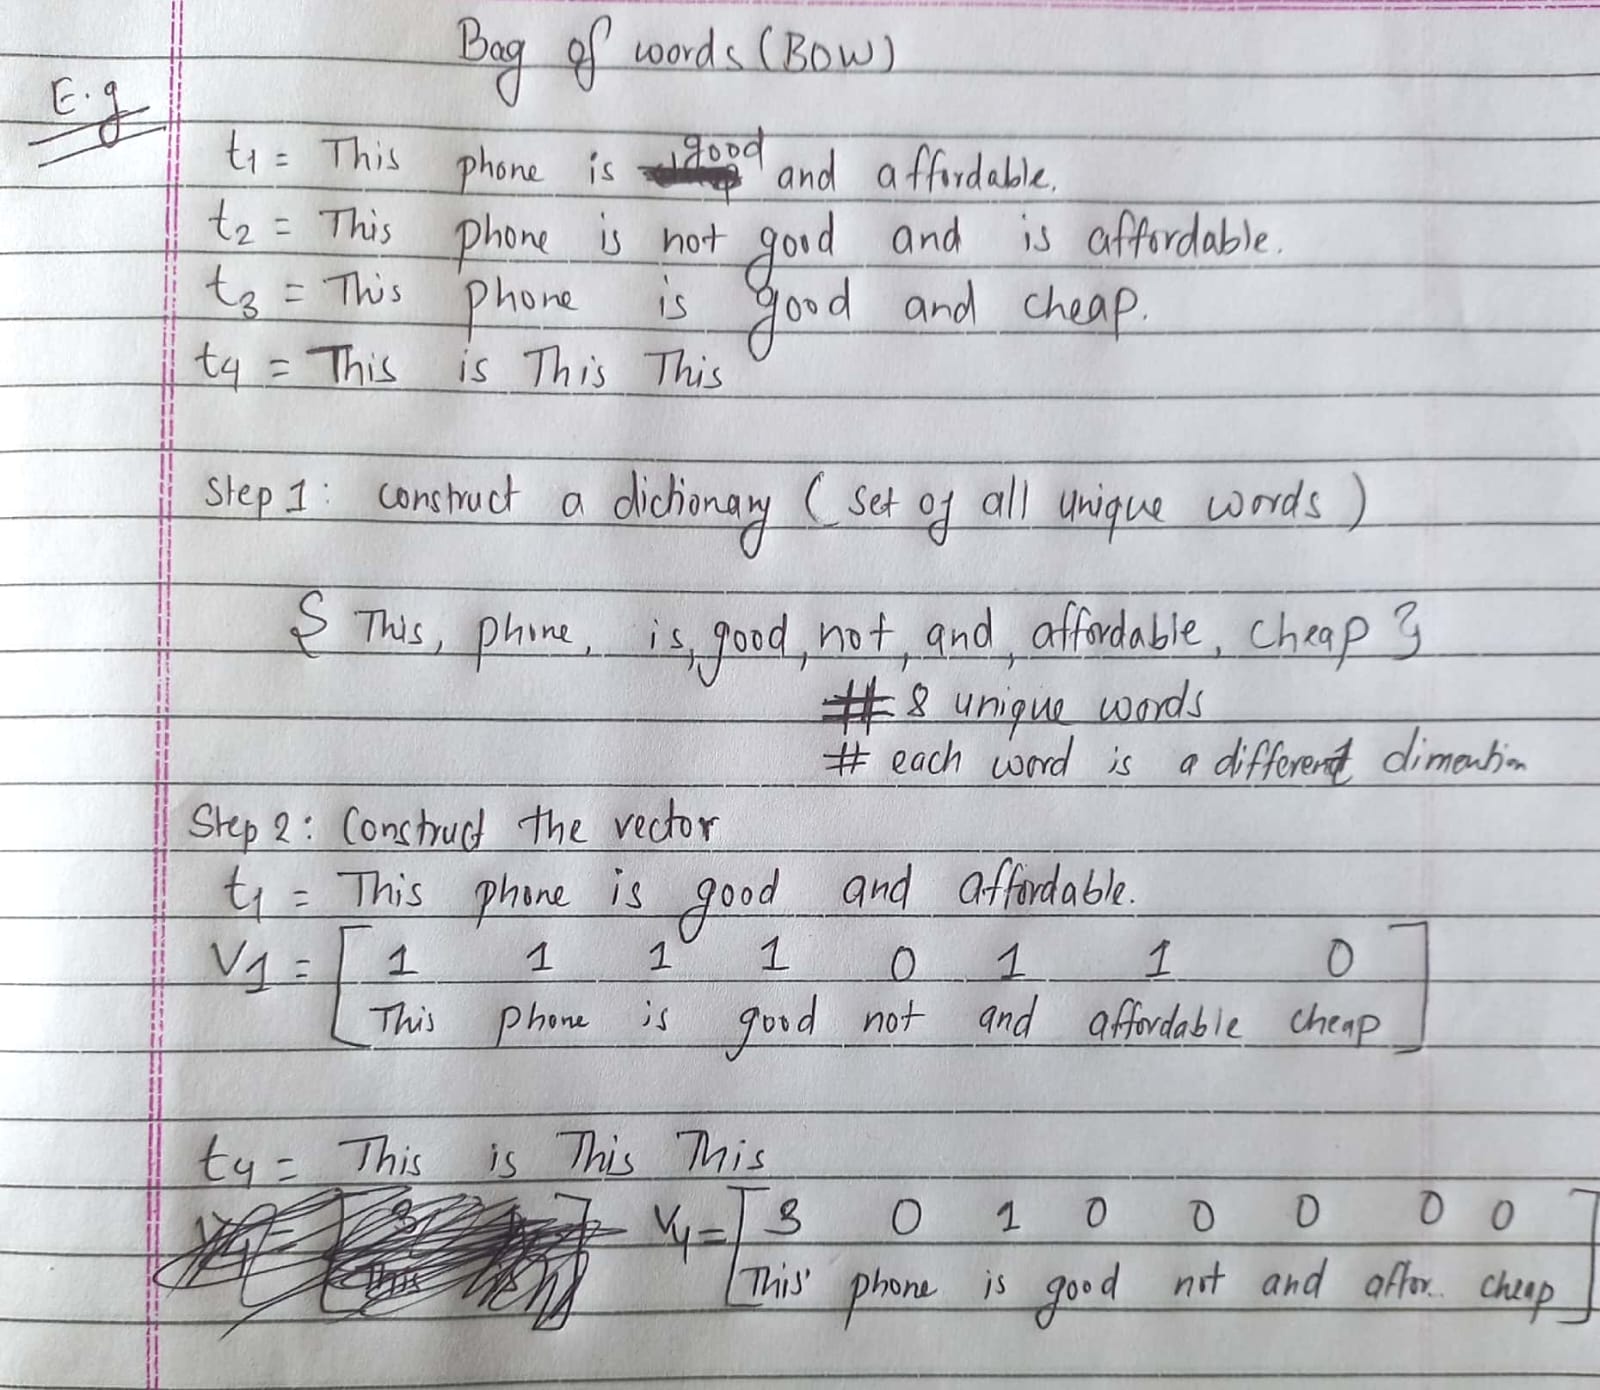 Bag of words (BOW)
E.g
t1 = This phone is good and affordable.
t2 = This phone is not good and is affordable.
t3 = This phone is good and cheap.
t4 = This is This This
Step 1: construct a dictionary ( set of all unique words )
{ This, phone, is, good, not, and, affordable, cheap }
# 8 unique words
# each word is a different dimention
Step 2: Construct the vector
t1 = This phone is good and affordable.
V1 = [ 1 1 1 1 0 1 1 0 ]
This phone is good not and affordable cheap
t4 = This is This This
V4 = [ 3 0 1 0 0 0 0 0 ]
This phone is good not and affor.. cheap